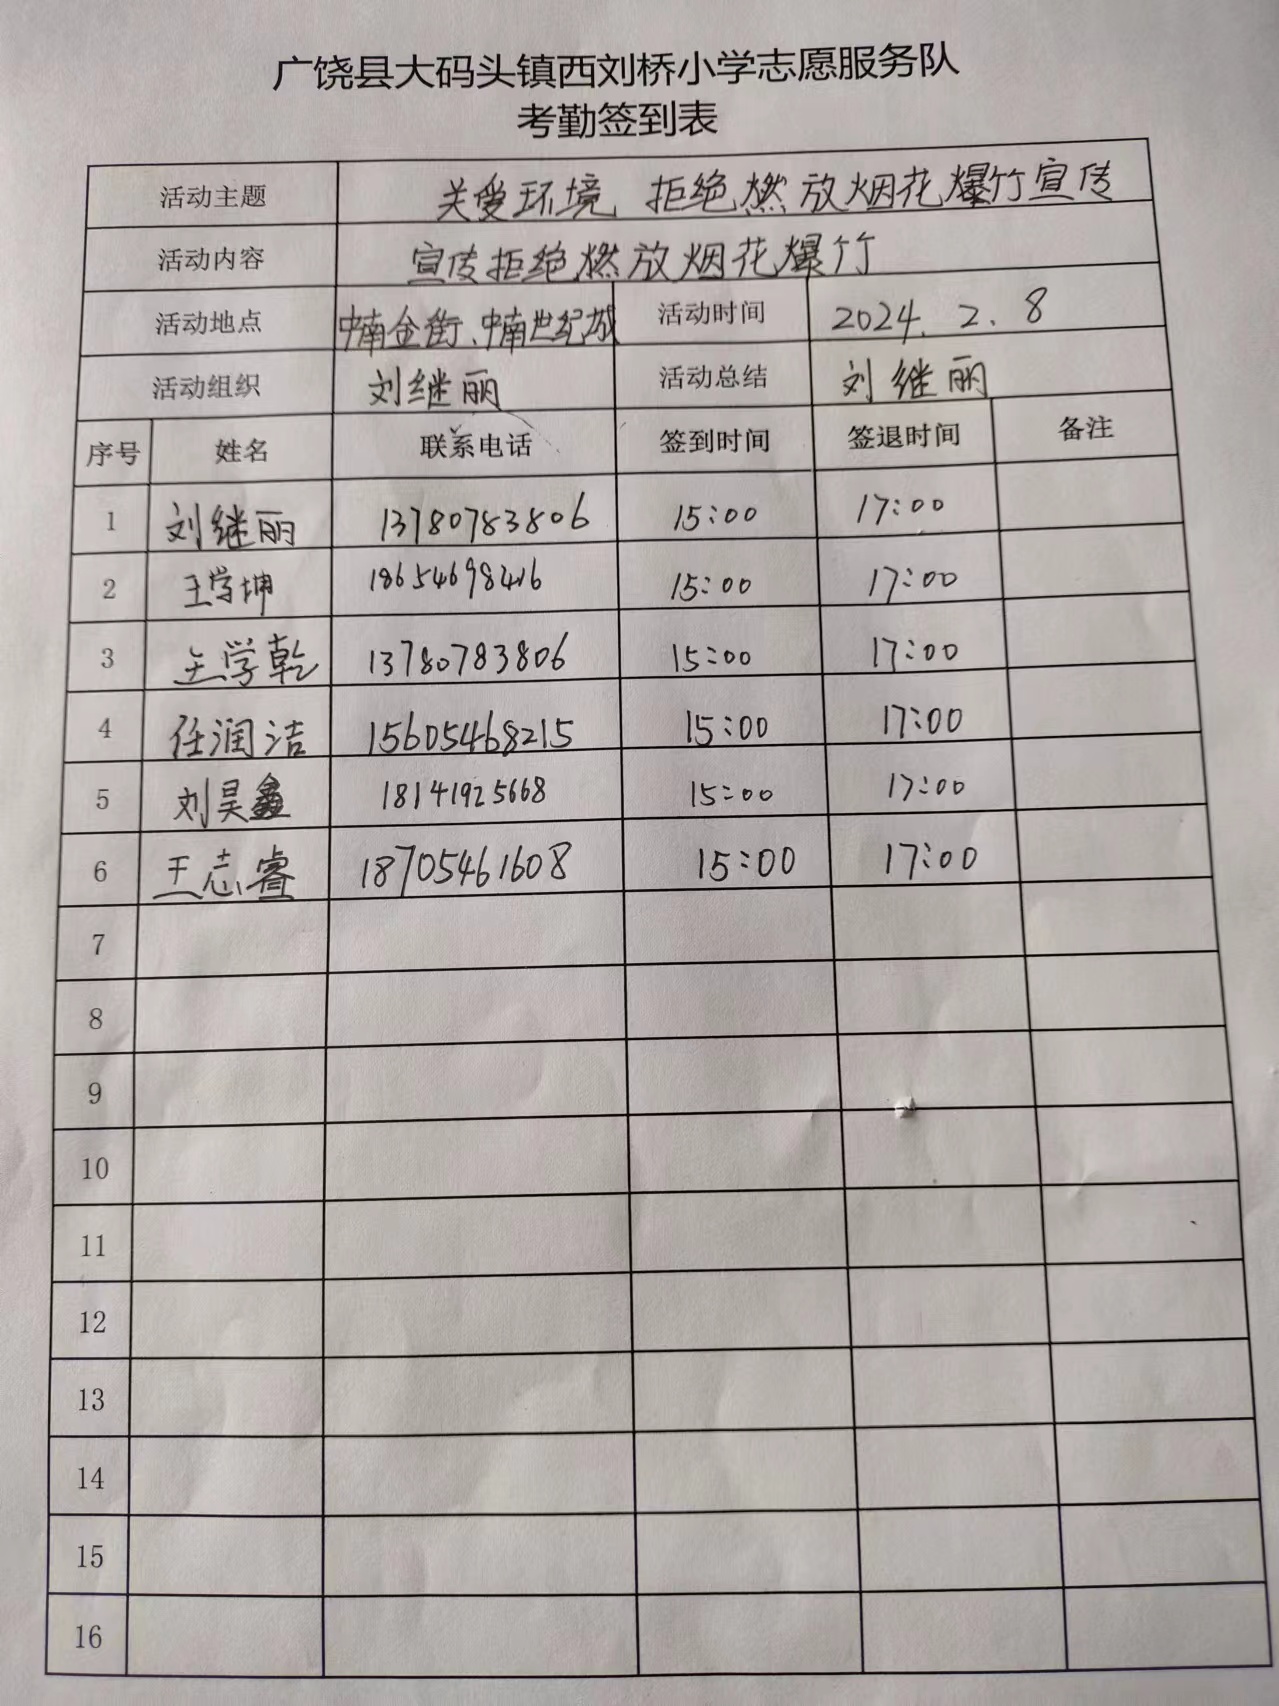 广饶县大码头镇西刘桥小学志愿服务队
考勤签到表
活动主题 关爱环境 拒绝燃放烟花爆竹宣传
活动内容 宣传拒绝燃放烟花爆竹
活动地点 中南金街、中南世纪城 活动时间 2024.2.8
活动组织 刘继丽 活动总结 刘继丽
序号 姓名 联系电话 签到时间 签退时间 备注
1 刘继丽 13780783806 15:00 17:00
2 王学坤 18654698416 15:00 17:00
3 王学乾 13780783806 15:00 17:00
4 任润洁 15605468215 15:00 17:00
5 刘昊鑫 18141925668 15:00 17:00
6 王志睿 18705461608 15:00 17:00
7
8
9
10
11
12
13
14
15
16